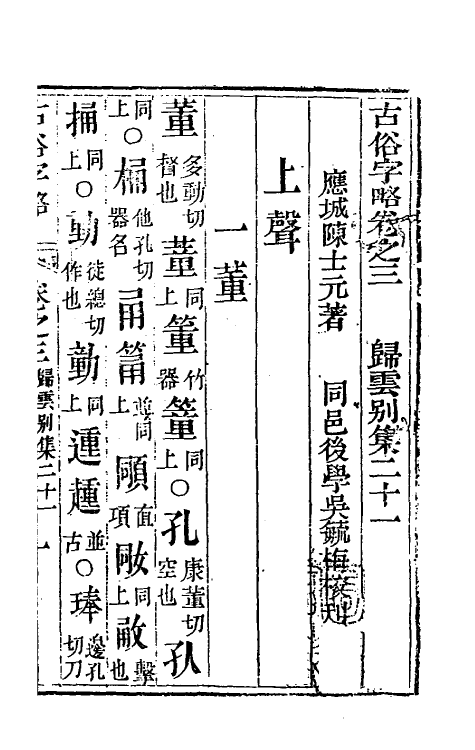 古俗字略卷之三　歸雲别集二十一
應城陳士元著　同邑後學吳毓梅校刊
上聲
一董
董多動切督也蕫同上箽竹器籦同上○孔康董切空也㺲
同上○桶他孔切器名甬筩並同上䪷直項㪌同上㪌擊也
捅同上○動徒總切作也勭同上運䟲並古○琫邊孔切刀
古俗字略　卷之三歸雲别集二十一　一